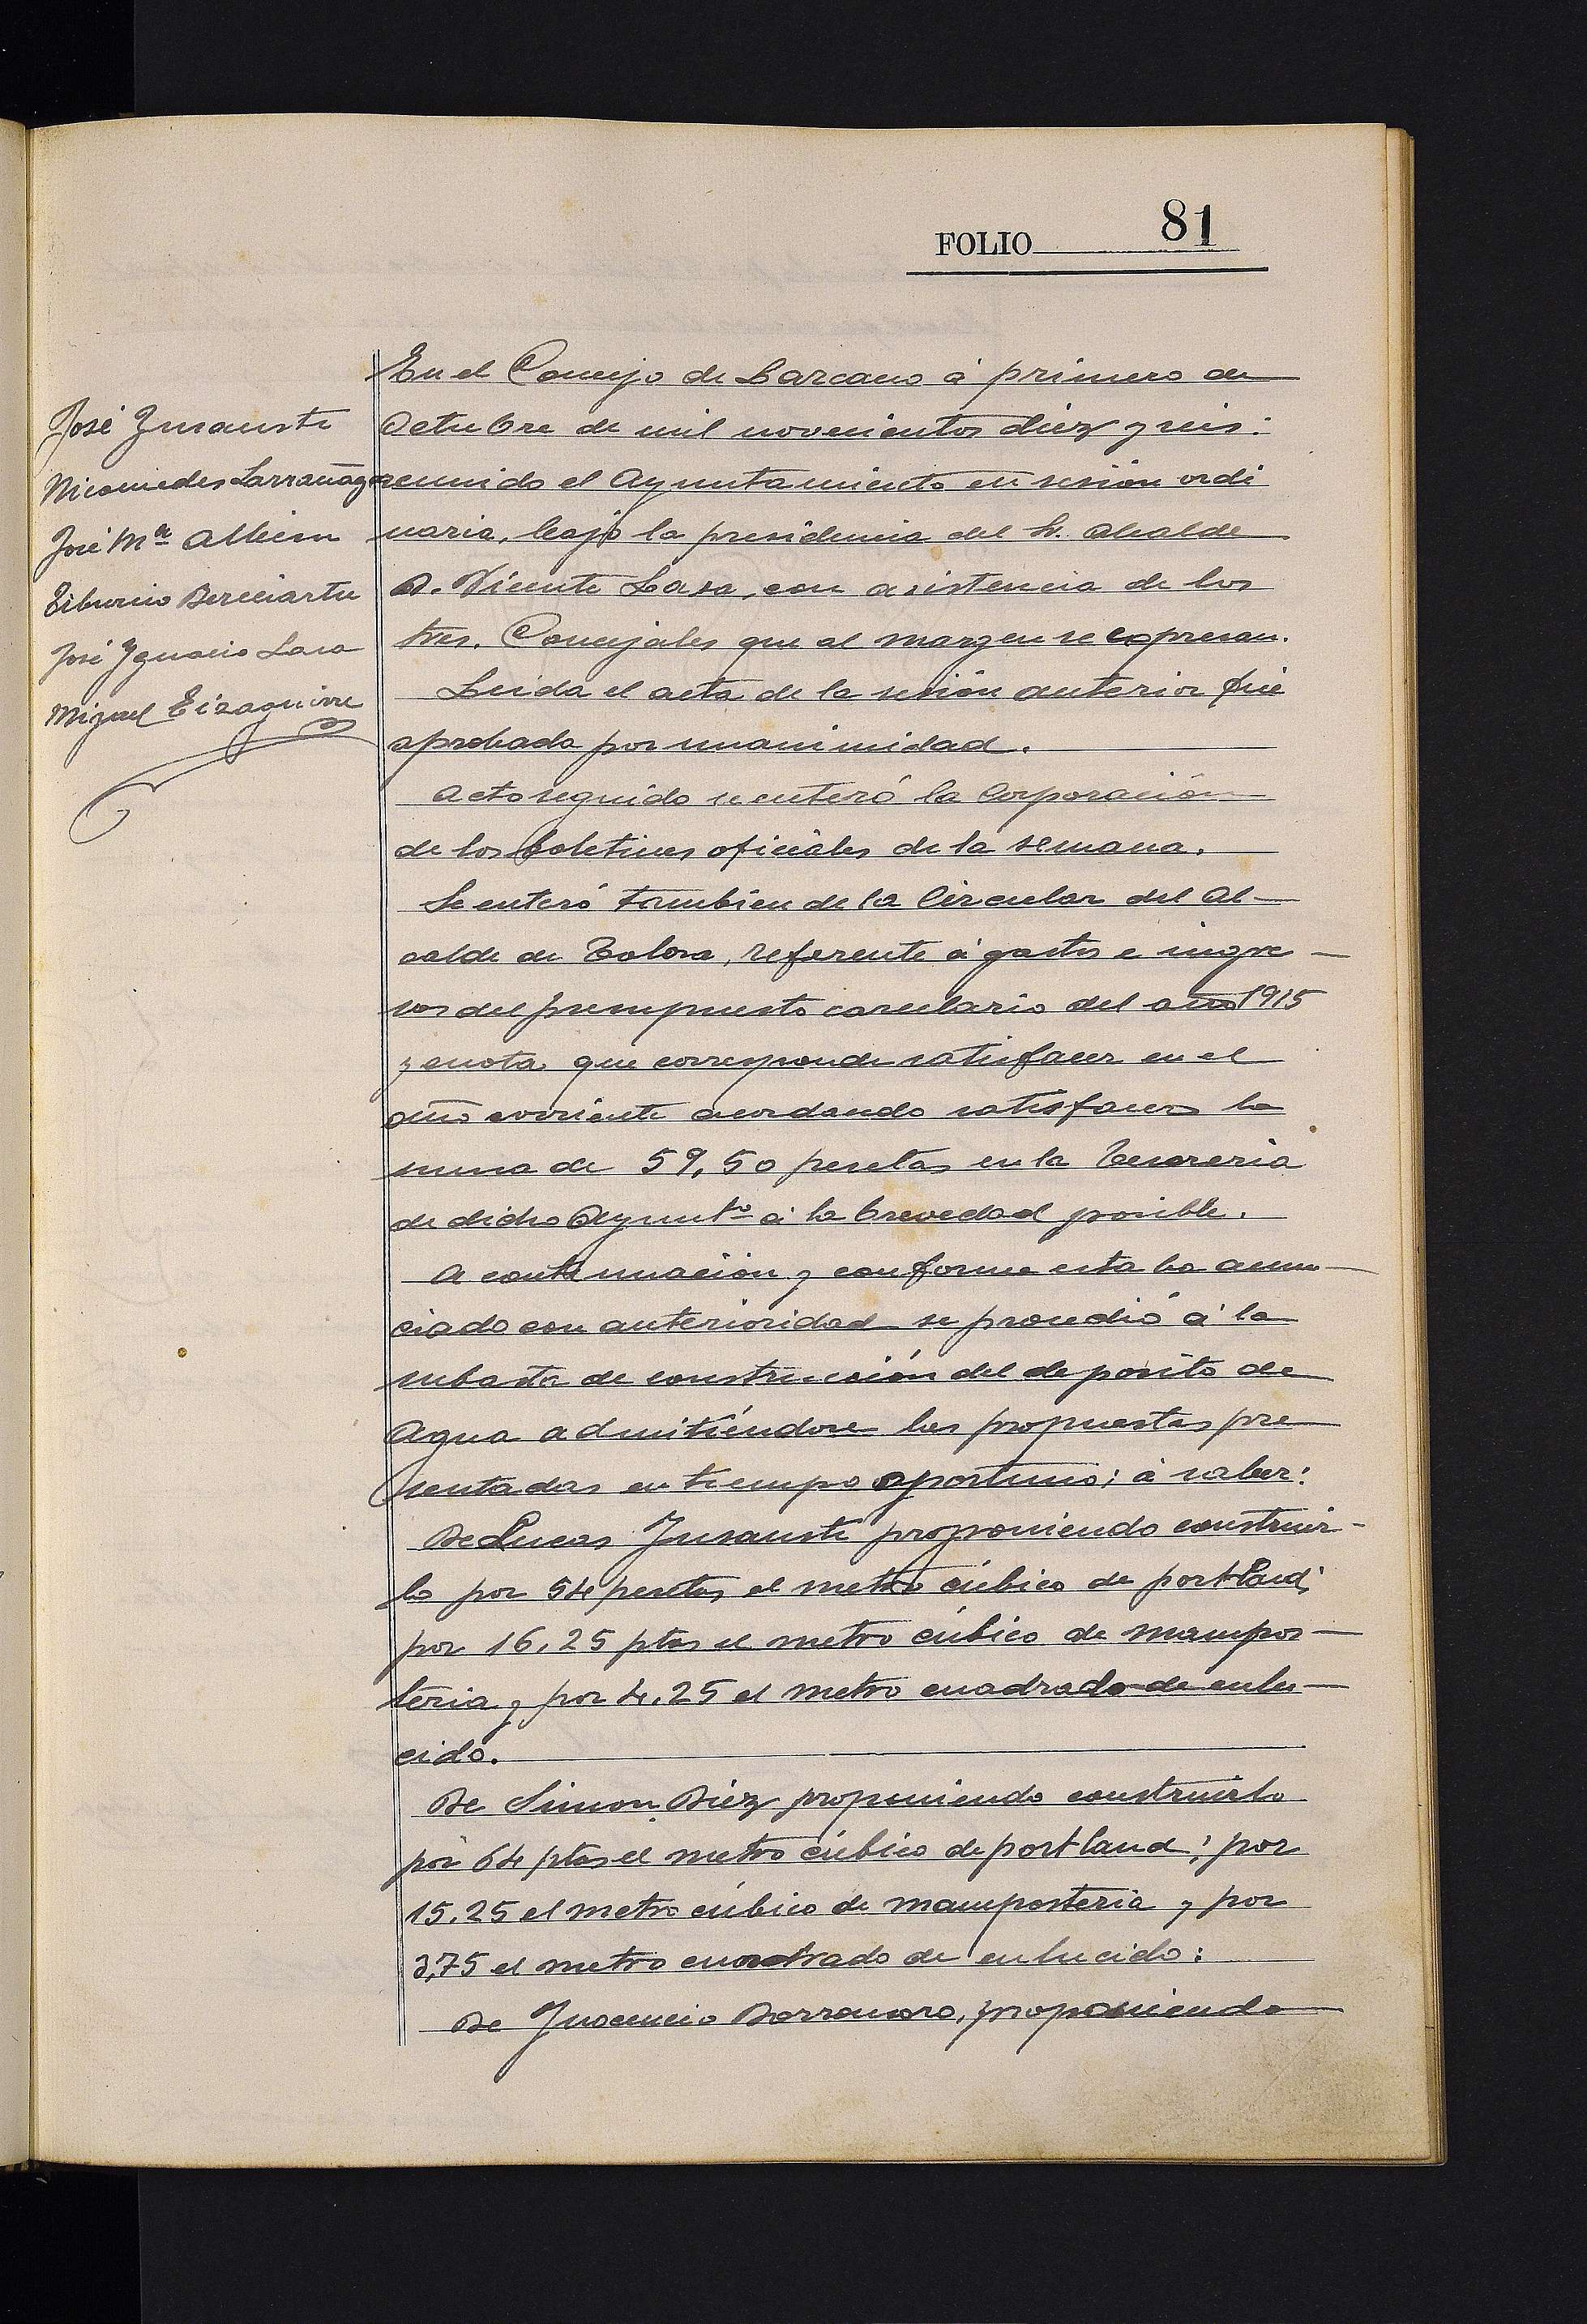 FOLIO 81
José Insausti
Nicomedes Larrañaga
José Mª Albisu
Tiburcio Berciartu
José Ygnacio Lasa
Miguel Eizaguirre
En el Concejo de Lazcano á primero de
Octubre de mil novecientos diez y seis:
reunido el Ayuntamiento en sesión ordi
naria, bajo la presidencia del Sr. Alcalde
D. Vicente Lasa, con asistencia de los
Sres. Concejales que al margen se expresan.
Leida el acta de la sesión anterior fué
aprobada por unanimidad.
Acto seguido se enteró la Corporación
de los boletines oficiales de la semana.
Se enteró tambien de la Circular del Al-
calde de Tolosa, referente á gastos e ingre-
sos del presupuesto carcelario del año 1915
y cuota que corresponde satisfacer en el
año corriente acordando satisfacer la
suma de 59,50 pesetas en la Tesoreria
de dicho Ayuntº á la brevedad posible.
A continuación y conforme estaba anun-
ciado con anterioridad se procedió á la
subasta de construcción del deposito de
Agua admitiéndose las propuestas pre
sentadas en tiempo oportuno; á saber:
De Lucas Insausti proponiendo construir-
lo por 54 pesetas el metro cúbico de portland;
por 16,25 ptas el metro cúbico de mampos-
teria y por 4,25 el metro cuadrado de enlu-
cido.
De Simon Diez proponiendo construirlo
por 64 ptas el metro cúbico de portland; por
15,25 el metro cúbico de mamposteria y por
3,75 el metro cuadrado de enlucido:
De Inocencio Barrancora, proponiendo